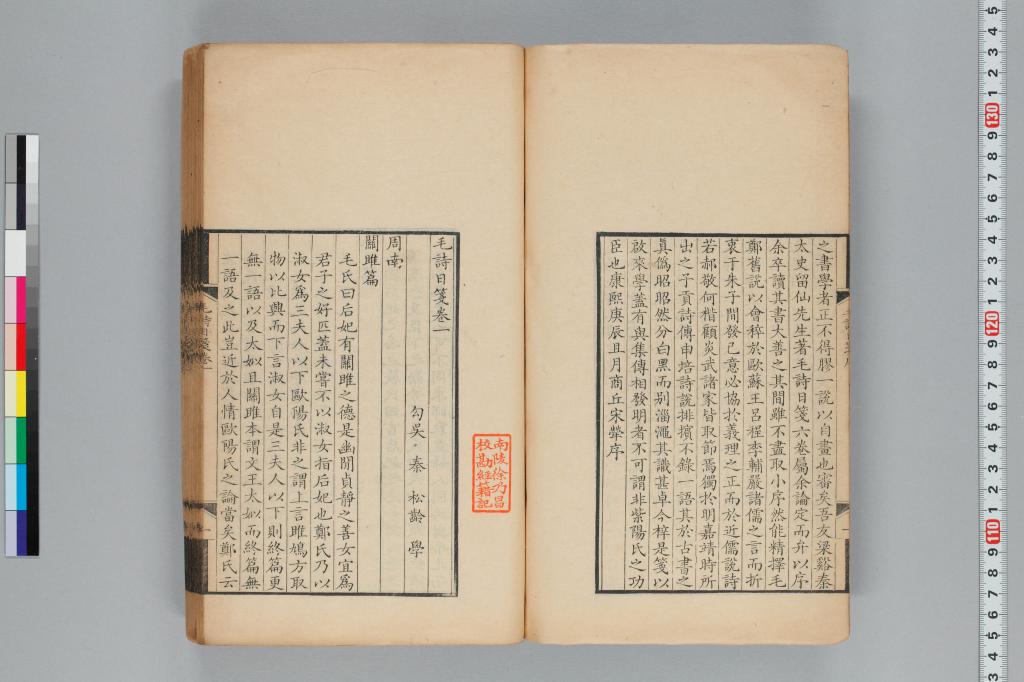 之書學者正不得膠一說以自畫也審矣吾友梁谿秦
太史留仙先生著毛詩日箋六卷屬余論定而弁以序
余卒讀其書大善之其間雖不盡取小序然能精擇毛
鄭舊說以會稡於歐蘇王呂程李輔嚴諸儒之言而折
衷于朱子間發己意必協於義理之正而於近儒說詩
若郝敬何楷顧炎武諸家皆取節焉獨於明嘉靖時所
出之子貢詩傳申培詩說排擯不錄一語其於古書之
真僞昭昭然分白黑而别淄澠其識甚卓今梓是箋以
啟來學蓋有與集傳相發明者不可謂非紫陽氏之功
臣也康熙庚辰且月商丘宋犖序
南陵徐乃昌
校勘經籍記
毛詩日箋卷一
勾吳秦松齡學
周南
關雎篇
毛氏曰后妃有關雎之德是幽閒貞靜之善女宜爲
君子之好匹蓋未嘗不以淑女指后妃也鄭氏乃以
淑女爲三夫人以下歐陽氏非之謂上言雎鳩方取
物以比興而下言淑女自是三夫人以下則終篇更
無一語以及太姒且關雎本謂文王太姒而終篇無
一語及之此豈近於人情歐陽氏之論當矣鄭氏云
毛詩日箋卷一